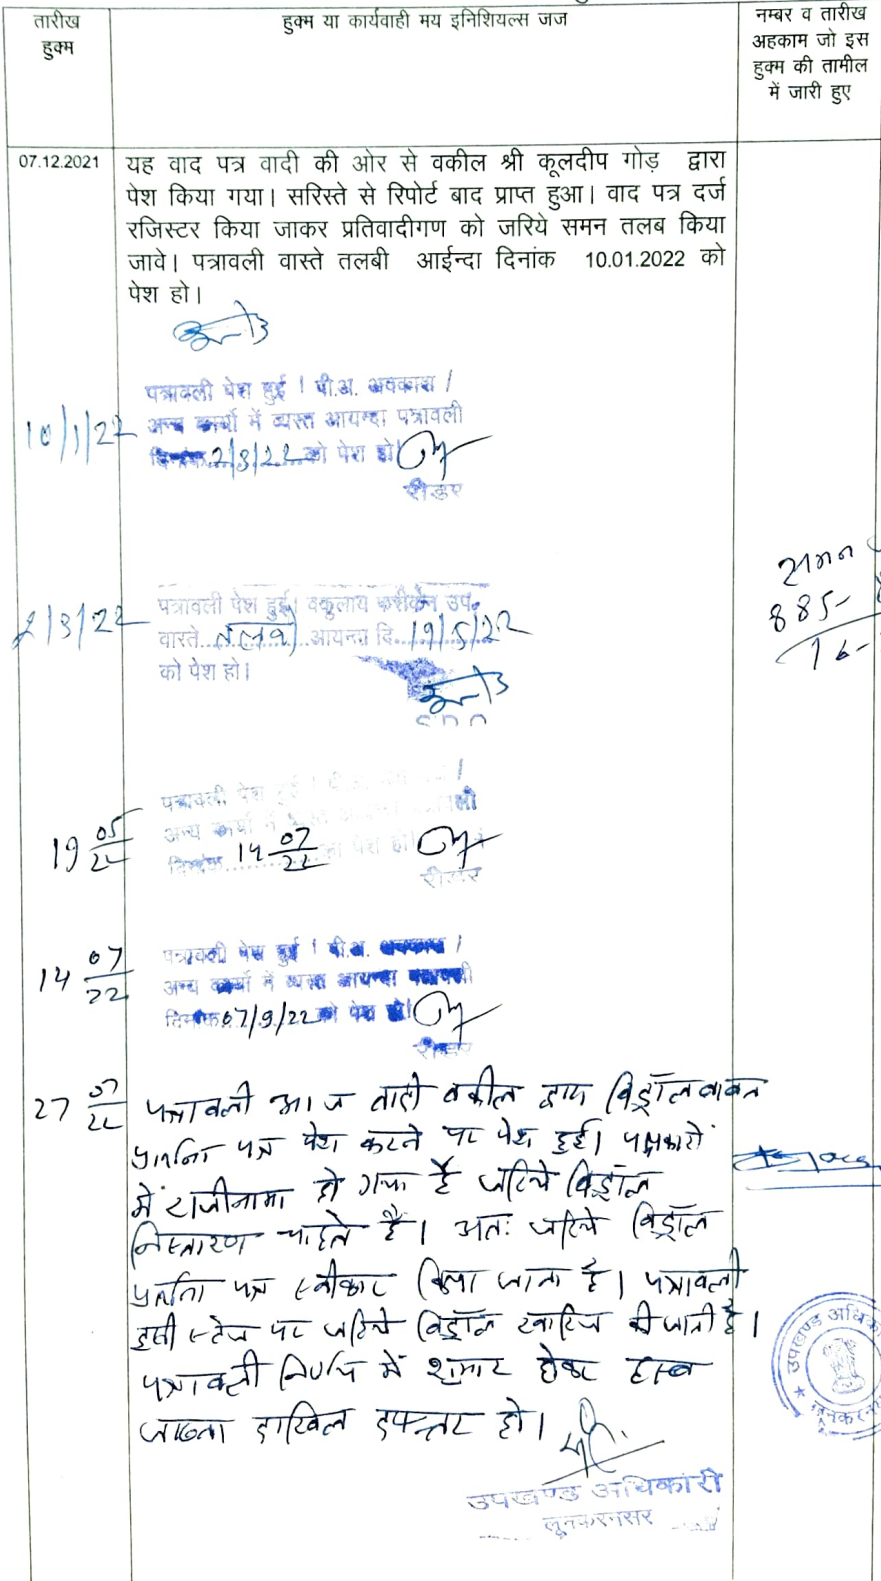 तारीख
हुक्म
हुक्म या कार्यवाही मय इनिशियल्स जज
नम्बर व तारीख
अहकाम जो इस
हुक्म की तामील
में जारी हुए
07.12.2021
यह वाद पत्र वादी की ओर से वकील श्री कूलदीप गोड़ द्वारा
पेश किया गया। सरिस्ते से रिपोर्ट बाद प्राप्त हुआ। वाद पत्र दर्ज
रजिस्टर किया जाकर प्रतिवादीगण को जरिये समन तलब किया
जावे। पत्रावली वास्ते तलबी आईन्दा दिनांक 10.01.2022 को
पेश हो।
10/1/22
पत्रावली पेश हुई । पी.अ. अवकाश /
अन्य कार्यो में व्यस्त आयन्दा पत्रावली
दिनांक 2/3/22 को पेश हो।
रीडर
समन
885-
16-
2/3/22
पत्रावली पेश हुई। वकुलाय फरीकेन उप.
वास्ते...तलबी...आयन्दा दि. 19/5/22
को पेश हो।
SDO
19 05/22
पत्रावली पेश हुई । पी
अन्य कार्यो में
दिनांक 14 07/22 को पेश हो।
रीडर
14 07/22
पत्रावली पेश हुई । पी.अ. अवकाश /
अन्य कार्यो में व्यस्त आयन्दा पत्रावली
दिनांक 07/9/22 को पेश हो।
रीडर
27 07/22
पत्रावली आज वादी वकील द्वारा विड्रॉल बाबत
प्रार्थना पत्र पेश करने पर पेश हुई। पक्षकारो
में राजीनामा हो गया है जरिये विड्रॉल
निस्तारण चाहते है। अतः जरिये विड्रॉल
प्रार्थना पत्र स्वीकार किया जाता है। पत्रावली
इसी स्टेज पर जरिये विड्रॉल खारिज की जाती है।
पत्रावली निर्णय में शुमार होकर हस्ब
जाब्ता दाखिल दफ्तर हो।
उपखण्ड अधिकारी
लूनकरनसर
उपखण्ड अधिका
लूनकरनसर